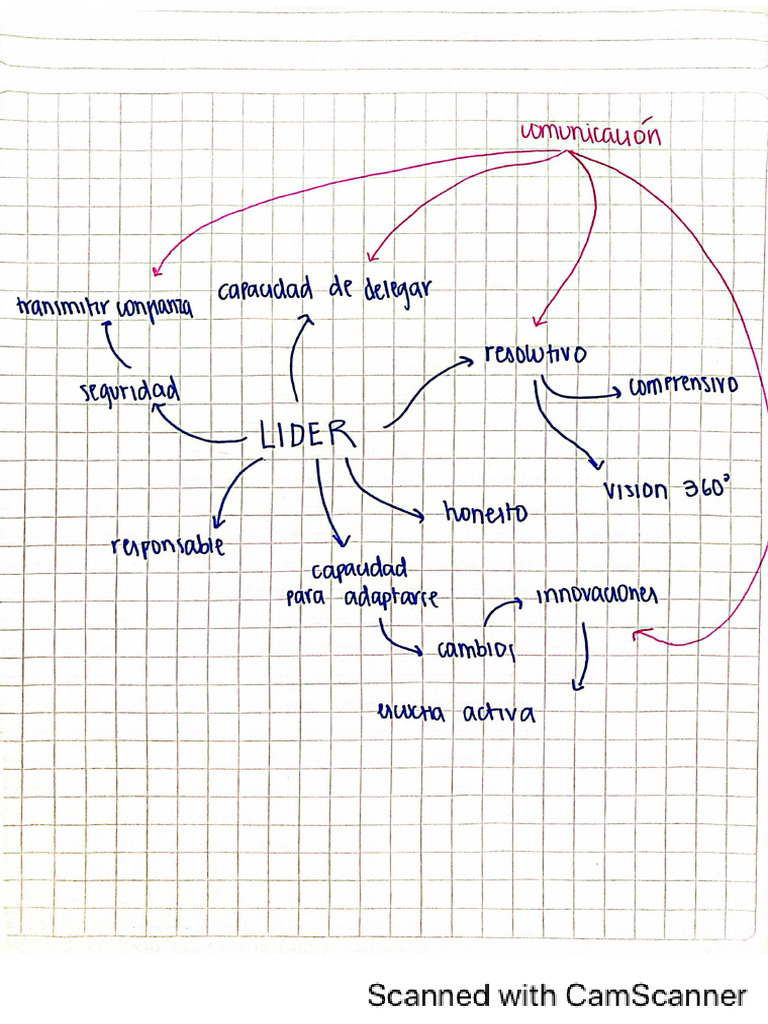 comunicación
capacidad de delegar
transmitir confianza
resolutivo
seguridad
comprensivo
LIDER
vision 360°
honesto
responsable
capacidad
para adaptarse
innovaciones
cambios
escucha activa
Scanned with CamScanner